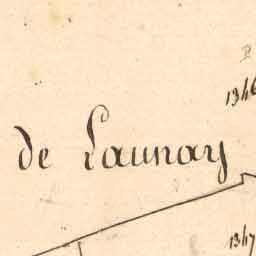 1346
de Launay
1347